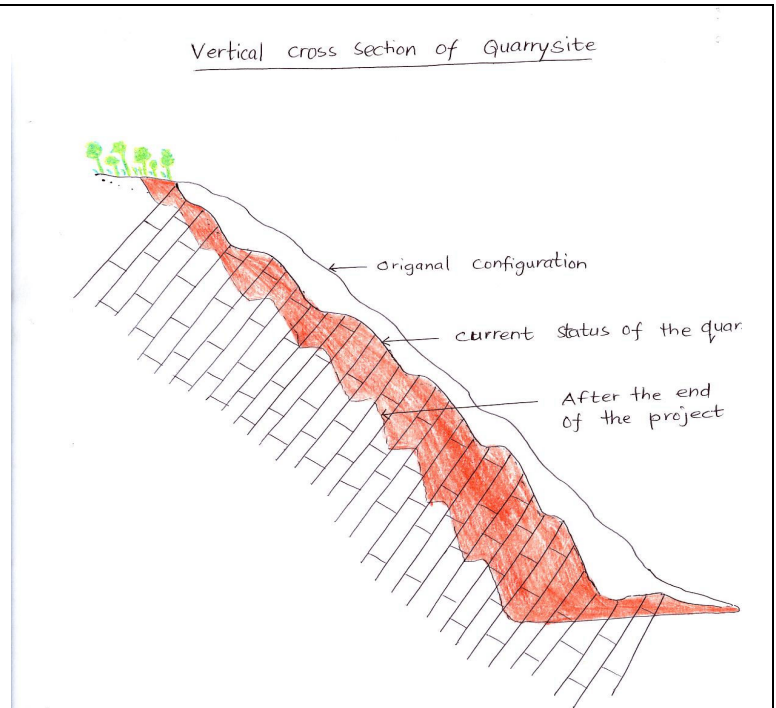 Vertical cross section of Quarrysite
origanal configuration
current status of the quar
After the end
of the project